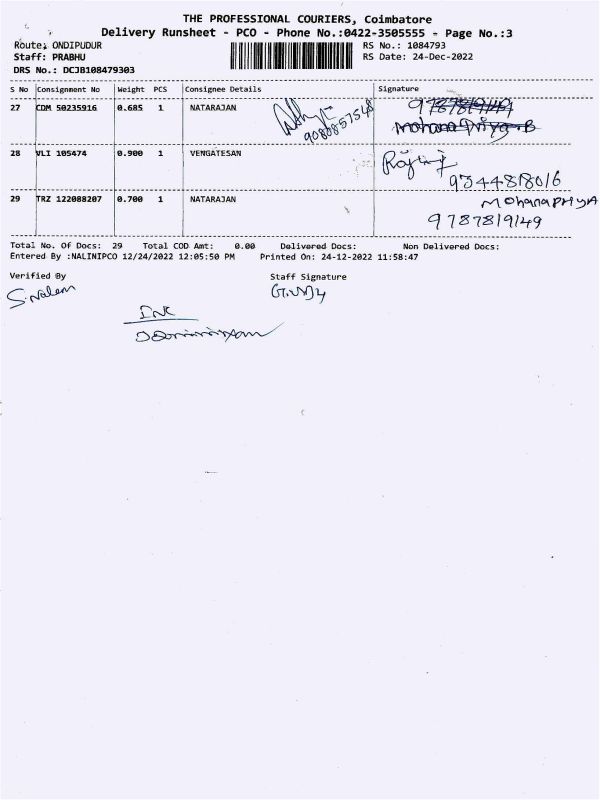 THE PROFESSIONAL COURIERS, Coimbatore
Delivery Runsheet - PCO - Phone No.:0422-3505555 - Page No.:3
Route: ONDIPUDUR RS No.: 1084793
Staff: PRABHU RS Date: 24-Dec-2022
DRS No.: DCJB108479303
S No Consignment No Weight PCS Consignee Details Signature
27 CDM 50235916 0.685 1 NATARAJAN 9080857548 9787819149
Mohana Priya B
28 VLI 105474 0.900 1 VENGATESAN
9344818016
29 TRZ 122088207 0.700 1 NATARAJAN MohanaPriyA
9787819149
Total No. Of Docs: 29 Total COD Amt: 0.00 Delivered Docs: Non Delivered Docs:
Entered By :NALINIPCO 12/24/2022 12:05:50 PM Printed On: 24-12-2022 11:58:47
Verified By Staff Signature